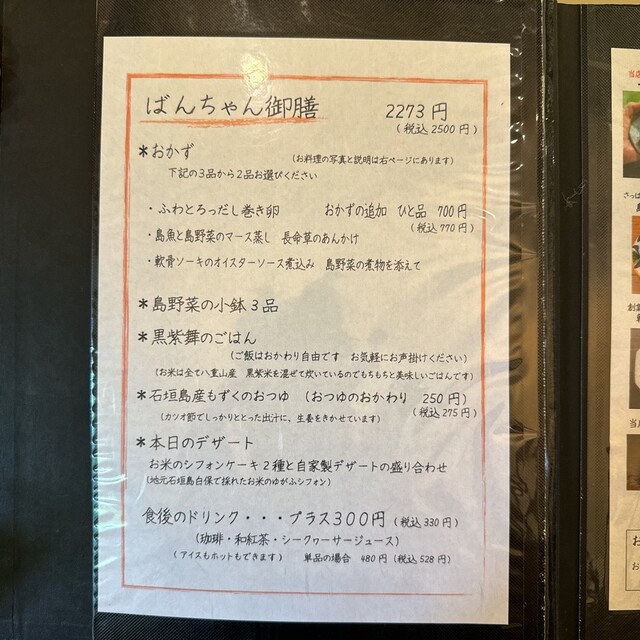 ばんちゃん御膳 2273円
(税込2500円)
＊おかず (お料理の写真と説明は右ページにあります)
下記の3品から2品お選びください
・ふわとろっだし巻き卵 おかずの追加 ひと品 700円
(税込770円)
・島魚と島野菜のマース蒸し 長命草のあんかけ
・軟骨ソーキのオイスターソース煮込み 島野菜の煮物を添えて
＊島野菜の小鉢3品
＊黒紫舞のごはん
(ご飯はおかわり自由です お気軽にお声掛けください)
(お米は全て八重山産 黒紫米を混ぜて炊いているのでもちもちと美味しいごはんです)
＊石垣島産もずくのおつゆ (おつゆのおかわり 250円)
(税込275円)
(カツオ節でしっかりととった出汁に、生姜をきかせています)
＊本日のデザート
お米のシフォンケーキ2種と自家製デザートの盛り合わせ
(地元石垣島白保で採れたお米のゆがふシフォン)
食後のドリンク・・・プラス300円 (税込330円)
(珈琲・和紅茶・シークヮーサージュース)
(アイスもホットもできます) 単品の場合 480円 (税込528円)